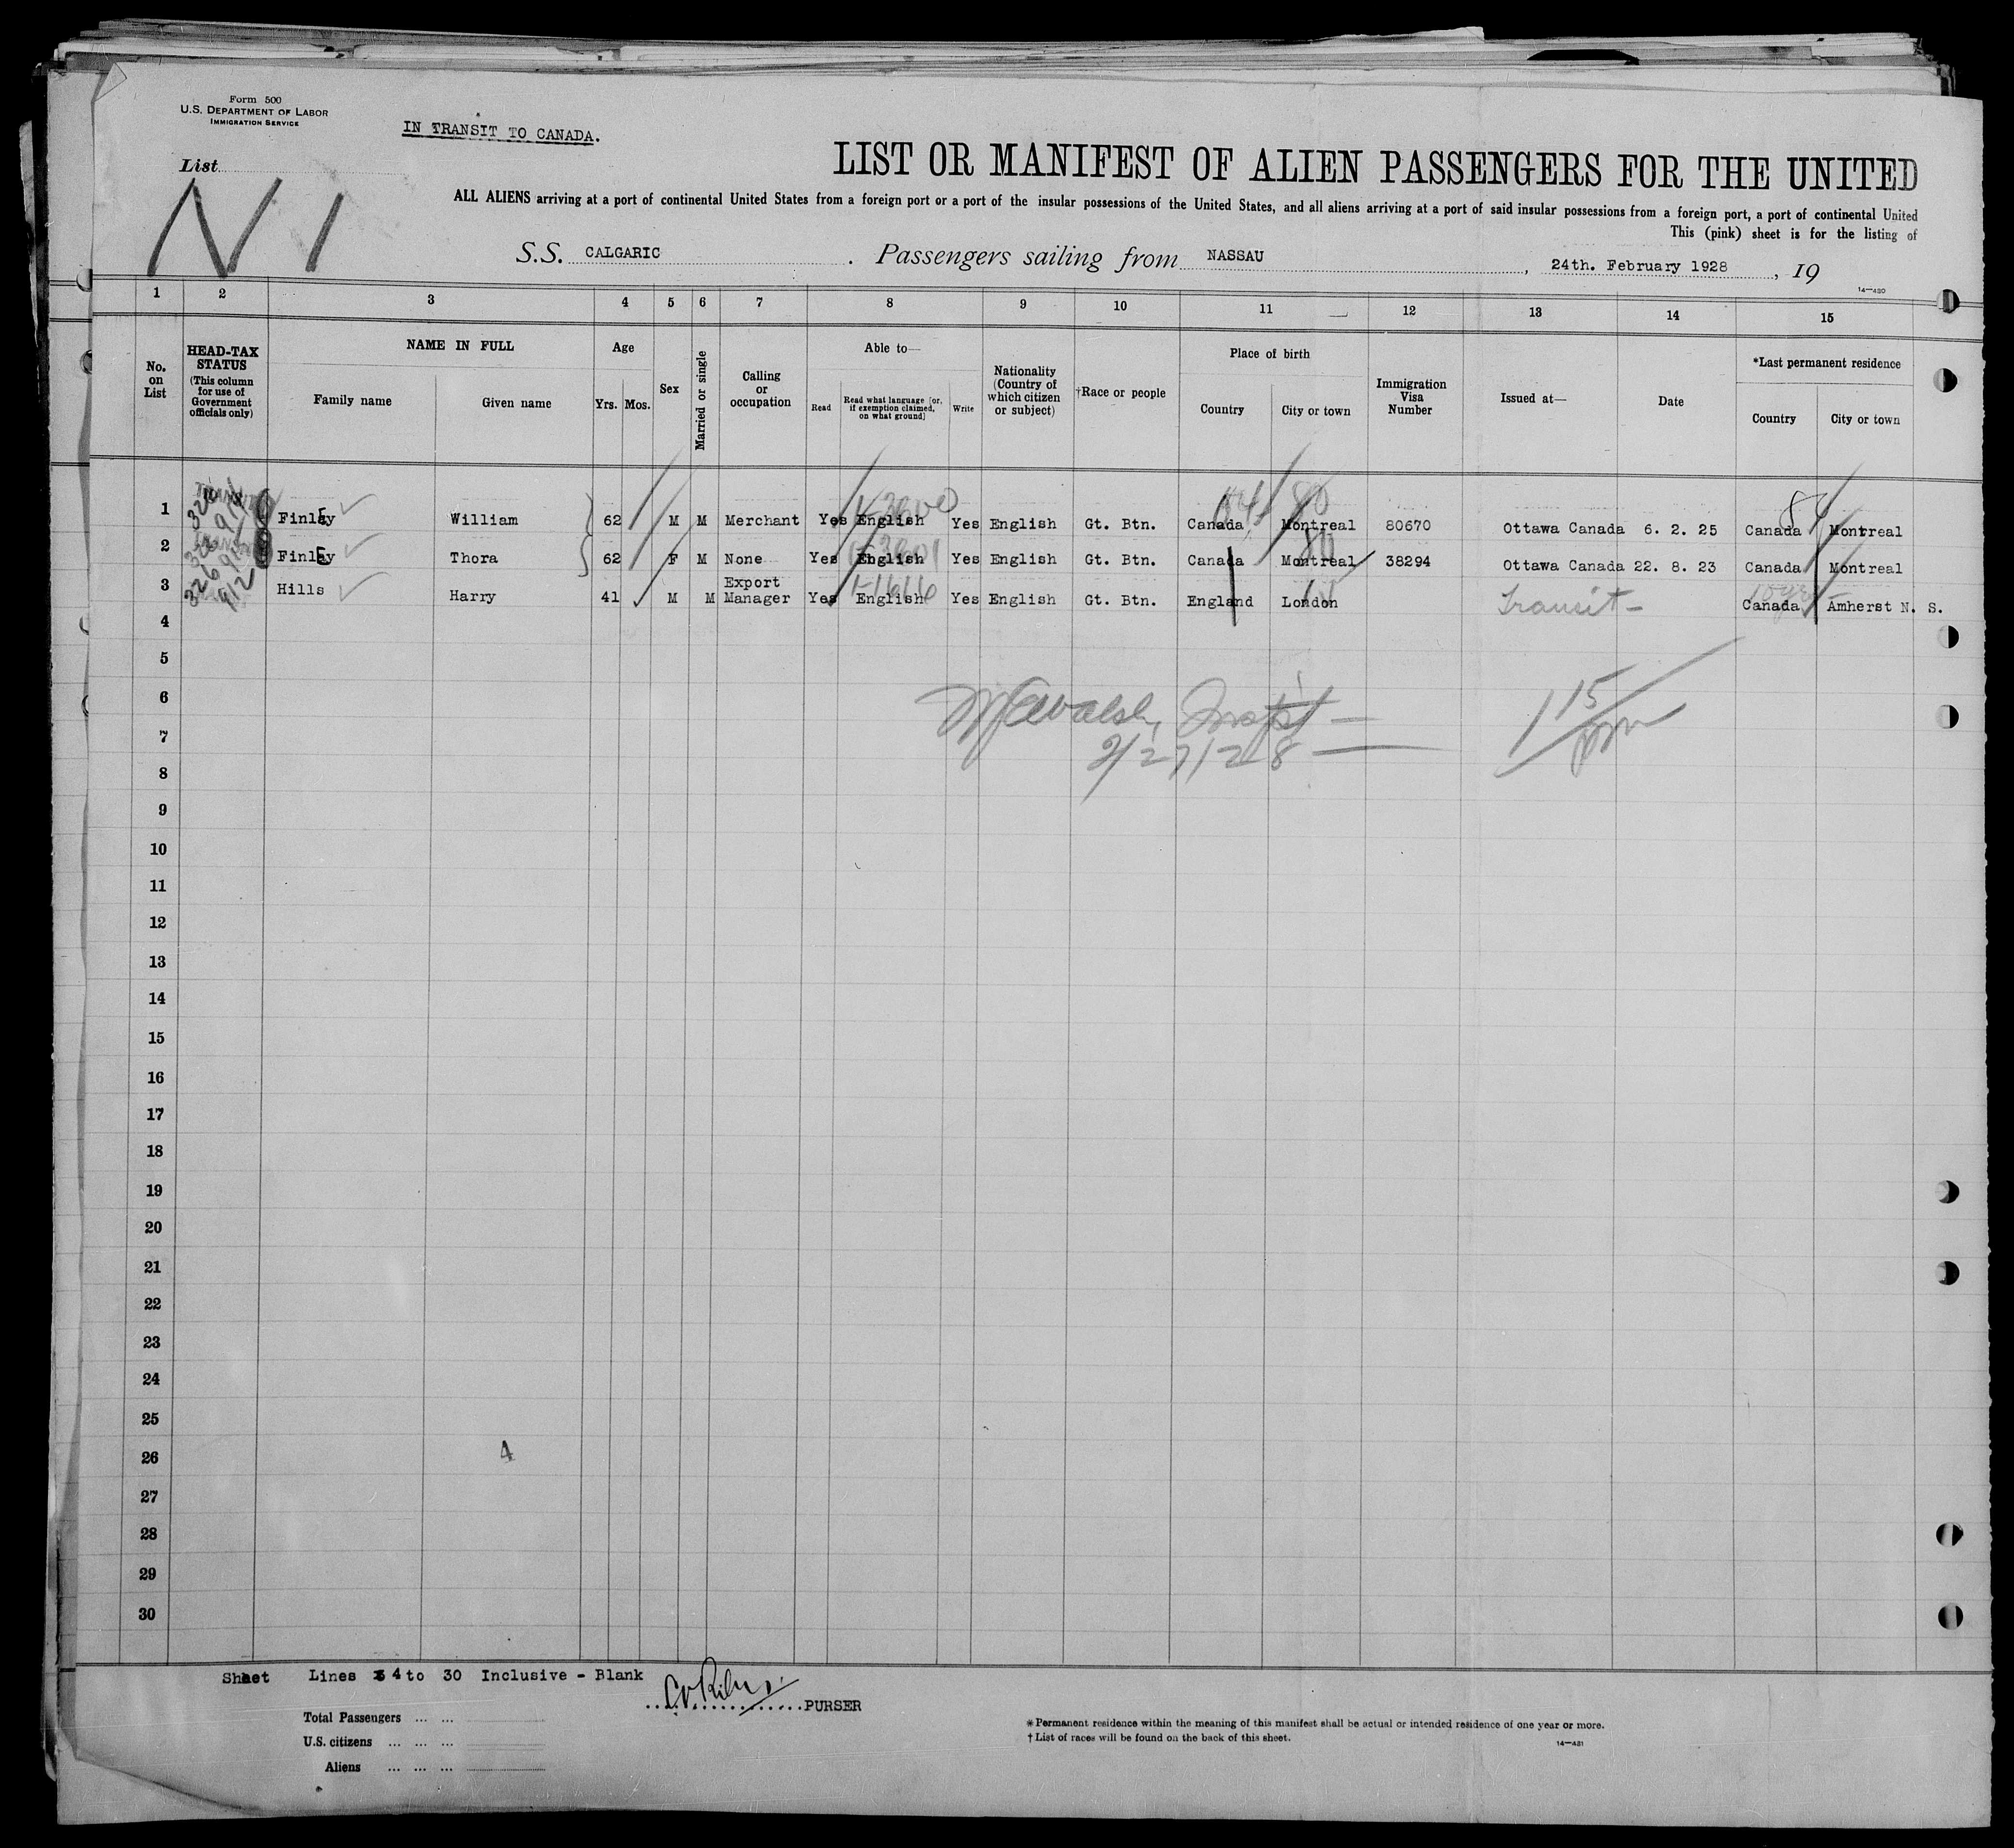 Form 500
U.S. DEPARTMENT OF LABOR
IMMIGRATION SERVICE
IN TRANSIT TO CANADA.
List
LIST OR MANIFEST OF ALIEN PASSENGERS FOR THE UNITED
ALL ALIENS arriving at a port of continental United States from a foreign port or a port of the insular possessions of the United States, and all aliens arriving at a port of said insular possessions from a foreign port, a port of continental United
This (pink) sheet is for the listing of
S.S. CALGARIC. Passengers sailing from NASSAU, 24th. February 1928, 19
14—430
1 2 3 4 5 6 7 8 9 10 11 12 13 14 15
No. on List
HEAD-TAX STATUS (This column for use of Government officials only)
NAME IN FULL
Family name Given name
Age
Yrs. Mos.
Sex
Married or single
Calling or occupation
Able to—
Read Read what language [or, if exemption claimed, on what ground] Write
Nationality (Country of which citizen or subject)
†Race or people
Place of birth
Country City or town
Immigration Visa Number
Issued at—
Date
*Last permanent residence
Country City or town
1 Finley William 62 M M Merchant Yes English Yes English Gt. Btn. Canada Montreal 80670 Ottawa Canada 6. 2. 25 Canada Montreal
2 Finley Thora 62 F M None Yes English Yes English Gt. Btn. Canada Montreal 38294 Ottawa Canada 22. 8. 23 Canada Montreal
3 Hills Harry 41 M M Export Manager Yes English Yes English Gt. Btn. England London Transit- Canada Amherst N. S.
4
5
6
7
2/27/28
8
9
10
11
12
13
14
15
16
17
18
19
20
21
22
23
24
25
26 4
27
28
29
30
Sheet Lines 4 to 30 Inclusive - Blank
PURSER
Total Passengers ... ...
U.S. citizens ... ... ...
Aliens ... ... ...
* Permanent residence within the meaning of this manifest shall be actual or intended residence of one year or more.
† List of races will be found on the back of this sheet.
14—431